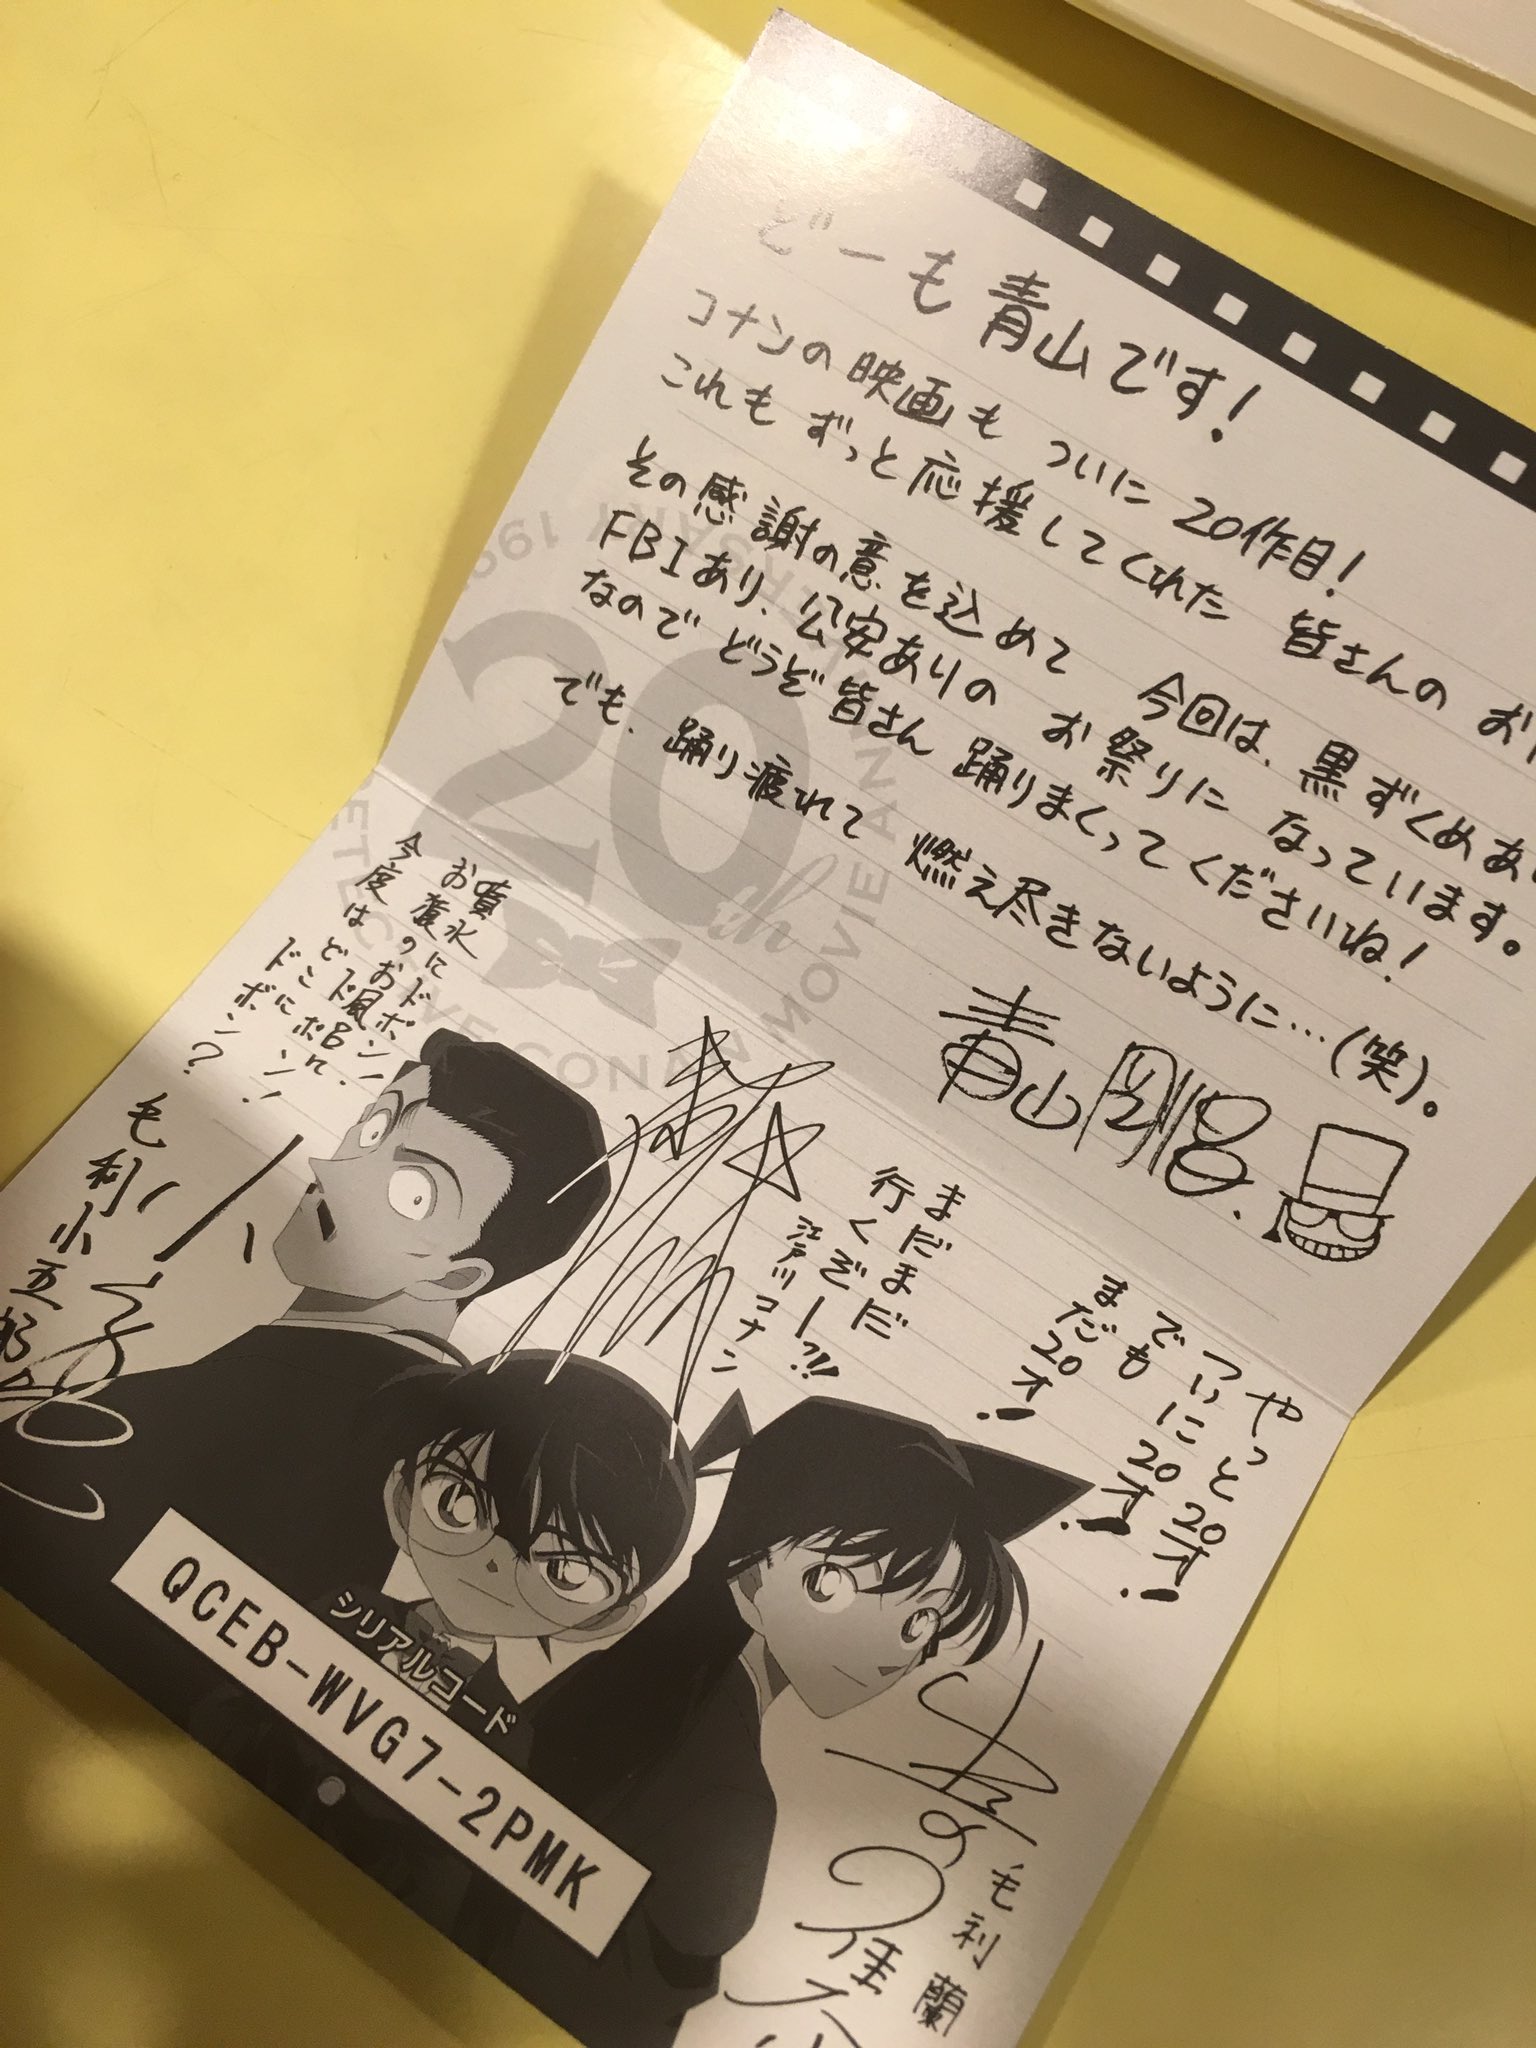 どーも青山です!
コナンの映画も ついに 20作目!
これも ずっと応援してくれた 皆さんの お
その感謝の意を込めて 今回は、黒ずくめあ
FBIあり、公安ありの お祭りに なっています。
なので どうぞ皆さん 踊りまくってくださいね!
でも、踊り疲れて 燃え尽きないように…(笑)。
青山剛昌.
20th
CONAN MOVIE ANNI
お噴水にドボン!
今度は
お風呂に
ドボン?
毛利小五郎
まだまだ
行くぞー?!!
江戸川コナン
やっと20才!
ついに20才!
でも
まだ20才!
毛利蘭
シリアルコード
QCEB-WVG7-2PMK